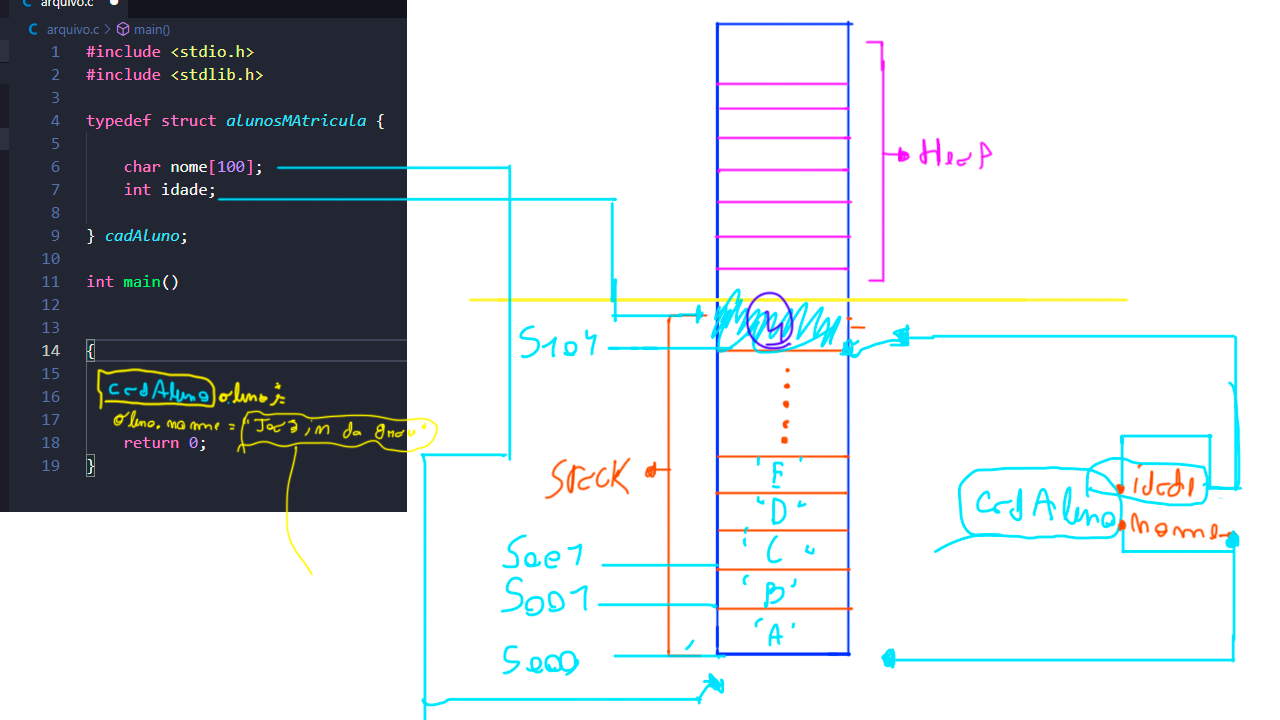 arquivo.c
arquivo.c > main()
1 #include <stdio.h>
2 #include <stdlib.h>
3
4 typedef struct alunosMAtricula {
5
6 char nome[100];
7 int idade;
8
9 } cadAluno;
10
11 int main()
12
13
14 {
15
16 cadAluno aluno;
17 aluno.nome =
18 return 0;
19 }
Heap
5104
4
Stack
'E'
"D"
'C"
'B'
'A'
5001
5001
5000
cadAluno
idade
nome